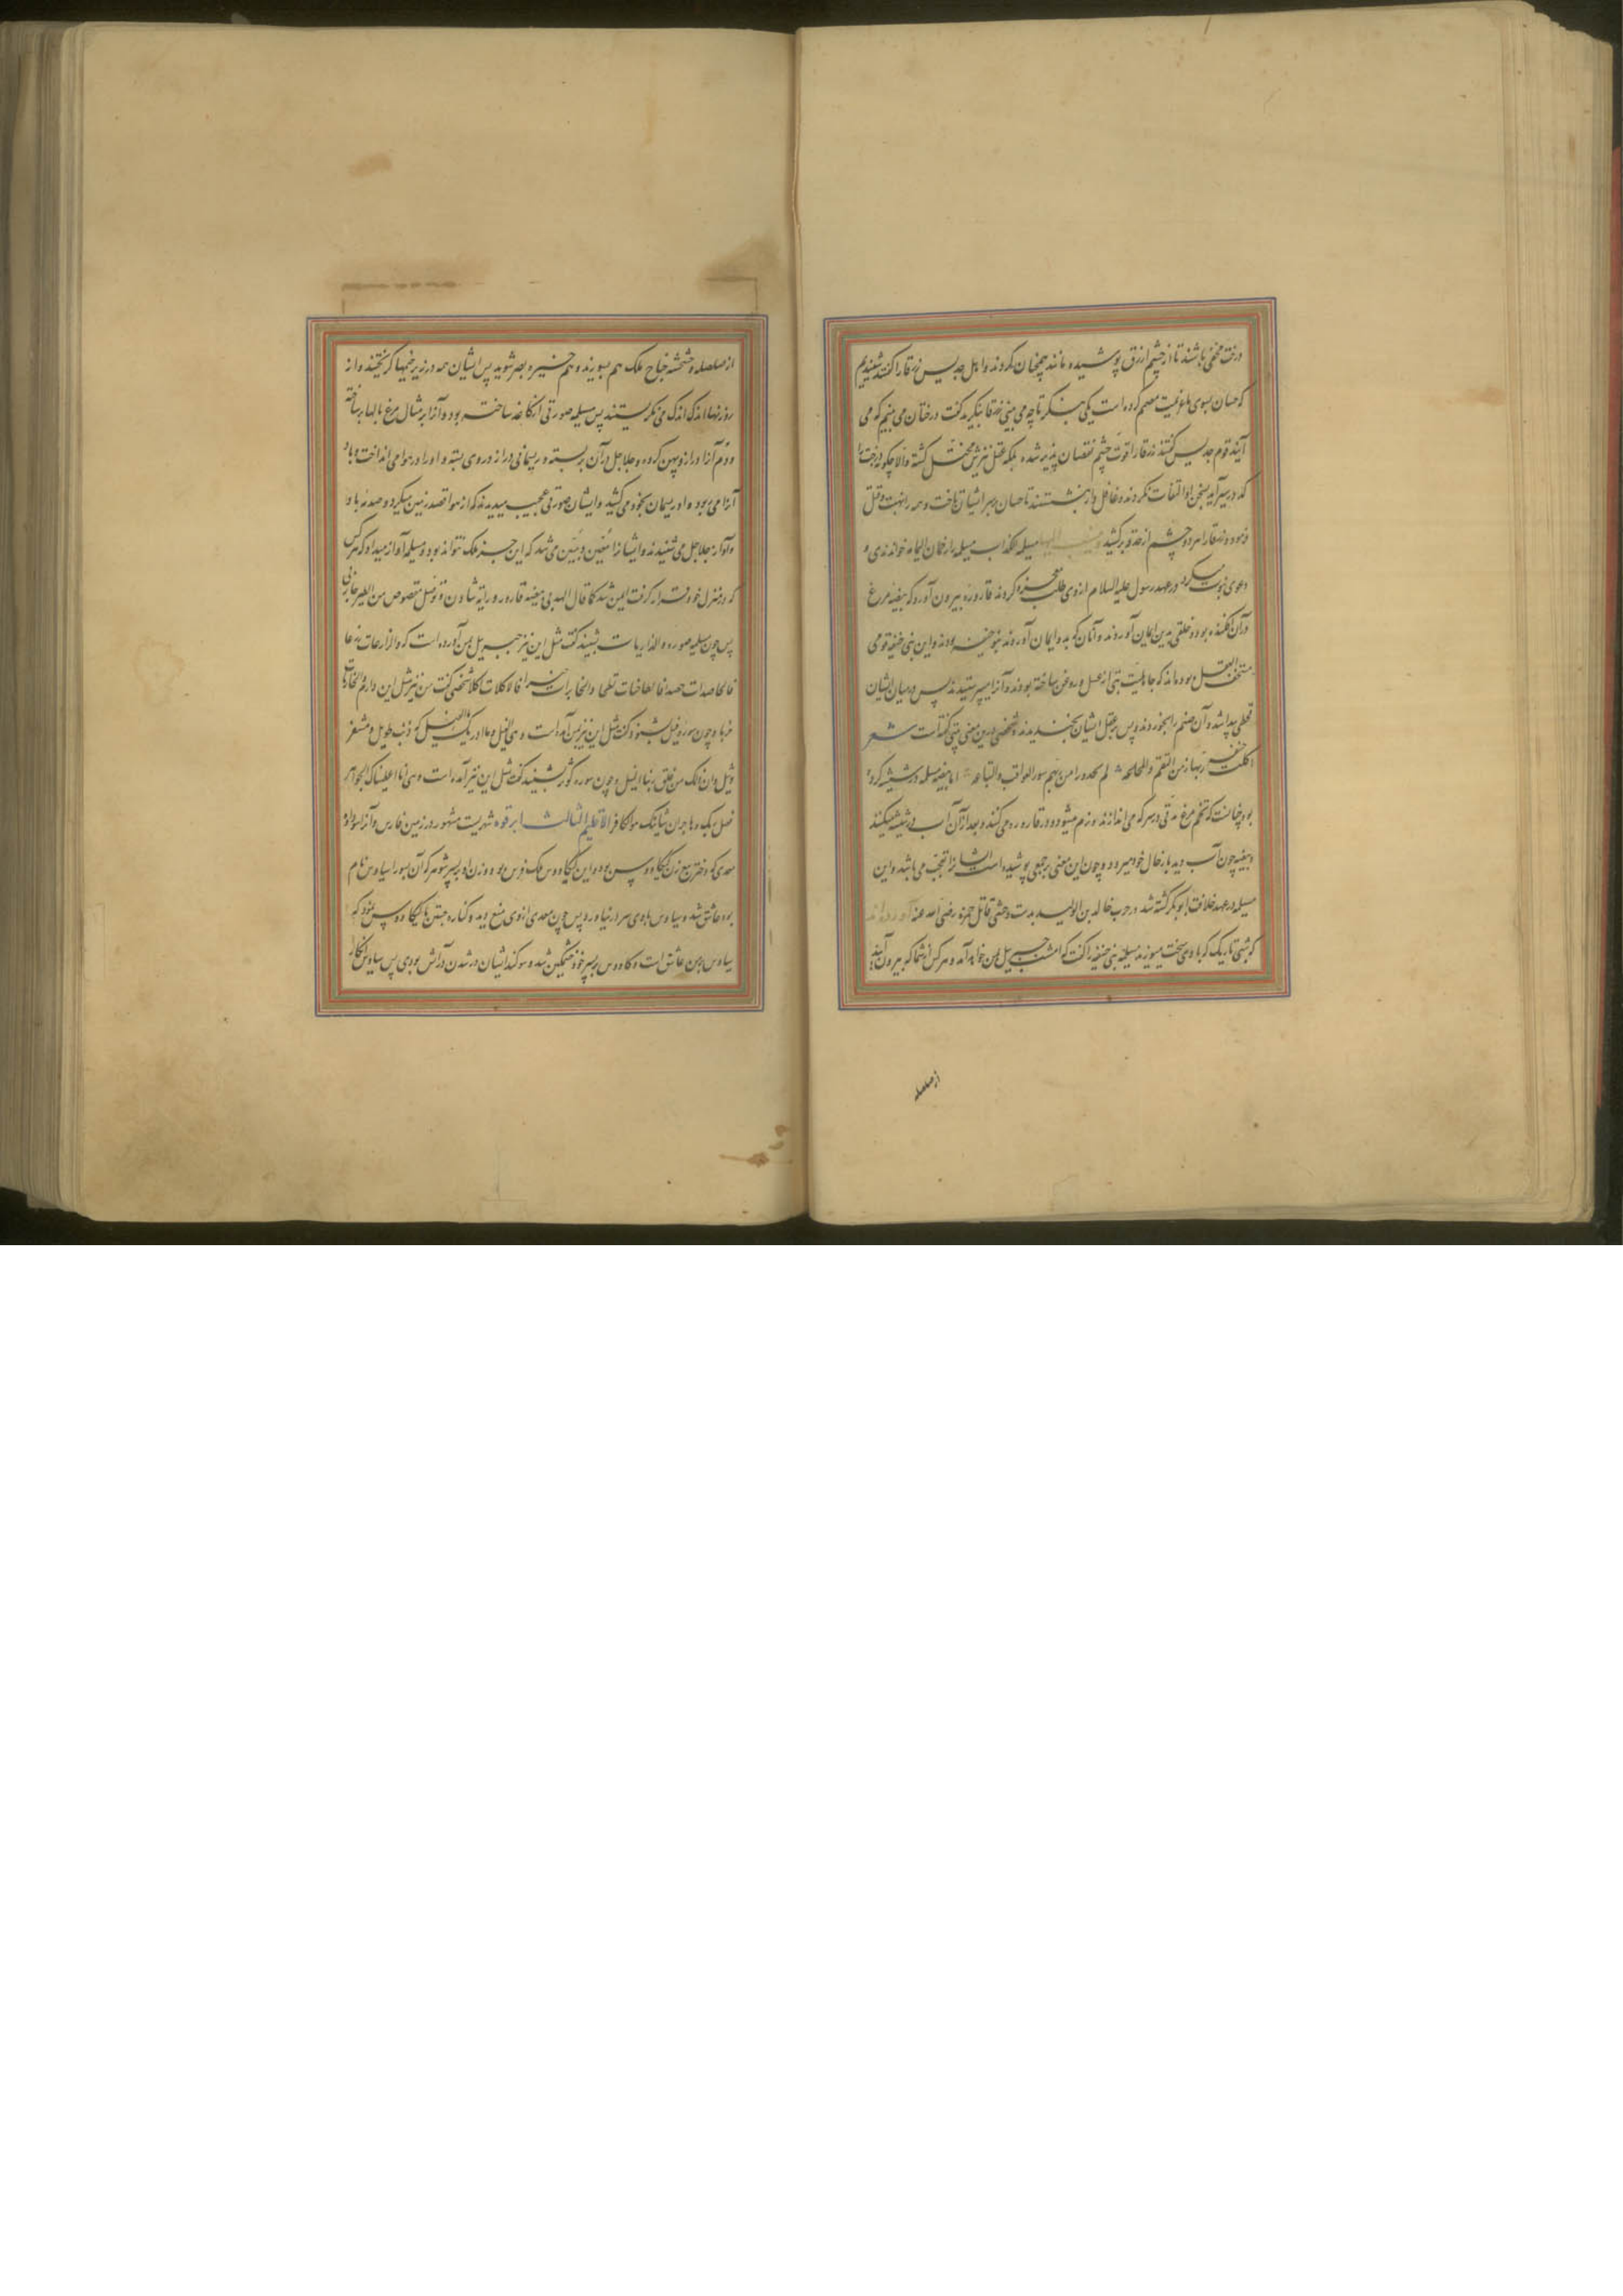 درخت مخفی باشند تا از چشم ازرق پوشیده مانند همچنان کردند و اهل جدیس زرقا را گفتند شنیدیم
که حسان بسوی ما عزیمت مصمم کرده است یکی بنگر تا چه می بینی زرقا بنگرید گفت درختان می بینم که می
آیند قوم جدیس گفتند زرقا را قوت چشم نقصان پذیر شده بلکه عقل نیزش مختل گشته والا چگونه درخت
که در سیر آید بسخن او التفات نکردند و غافل وار بنشستند تا حسان بر سر ایشان تاخت و همه را نهب و قتل
فرمود و زرقا را هر دو چشم از حدقه برکشید مسیلمه الکذاب مسیلمه را رحمان الیمامه خواندندی و
دعوی نبوت میکرد در عهد رسول علیه السلام از وی طلب معجزه کردند قاروره بیرون آورد که بیضه مرغ
در آن افکنده بود و خلقی بدین ایمان آوردند و آنان که بدو ایمان آوردند بنو حنیفه بودند و این بنی حنیفه قومی
مستخف العقل بوده اند که در جاهلیت بتی از عسل و روغن ساخته بودند و آنرا میپرستیدند پس در میان ایشان
قحطی پیدا شد و آن صنم را بخوردند و پس بر عقل ایشان بخندیدند و شخصی درین معنی بیتی گفته است شعر
اکلت حنیفه ربها زمن التقحم والمجاعه لم یحذروا من ربهم سوء العواقب والتباعه اما بیضه مسیلمه در شیشه کرده
بود چنانست که تخم مرغ مدتی در سرکه می اندازند و نرم میشود و در قاروره می کنند و بعد از آن آب در شیشه میکنند
و بیضه چون آب دید باز بحال خود میرود و چون این معنی بر جمعی پوشیده است ایشانرا تعجب می باشد و این
مسیلمه در عهد خلافت ابوبکر کشته شد در حرب خالد بن الولید بدست وحشی قاتل حمزه رضی الله عنه آورده اند
که شبی تاریک که باد سخت میوزید مسیلمه بنی حنیفه را گفت که امشب جبریل بمن خواهد آمد و هر کس از شما که بیرون آید
از صلصله
از صلصله و خشخشه جناح ملک هم بسوزید و هم خیره بصر شوید پس ایشان همه در زیر خیمها گریختند و از
روزنها اندک اندک می نگریستند پس مسیلمه صورتی از کاغذ ساخته بود و آنرا بر مثال مرغ بالها بر ساخته
و دم آنرا دراز و پهن کرده و جلاجل در آن بربسته و ریسمانی دراز در وی بسته و او را در هوا می انداخت و باد
آنرا می ربود و او ریسمان بخود می کشید و ایشان صورتی عجیب میدیدند که از هوا قصد زمین میکرد و صدمه باد
و آواز جلاجل می شنیدند و ایشانرا متیقن و مبین می شد که این جز ملک نتواند بود و مسیلمه آواز میداد که هر کس
که در منزل خود قرار گرفت ایمن شد کما قال الهذلی ببیضه قارور و رایه شادن و توصیل مقصوص من الطیر جادف
پس چون مسیلمه سوره والذاریات بشنید گفت مثل این نیز جبریل بمن آورده است که والزارعات زرعا
فالحاصدات حصدا فالطاحنات طحنا والخابزات خبزا فالآکلات اکلا شخصی گفت من نیز مثل این دارم
خریا و چون سوره فیل بشنود گفت مثل این نیز بمن آمده است و هی الفیل و ما ادریک ما الفیل له ذنب طویل و مشفر
وثیل وان ذلک من خلق ربنا الجلیل و چون سوره کوثر بشنید گفت مثل این نیز آمده است وهی انا اعطیناک الجواهر
فصل لربک وهاجر ان شانئک هو الکافر الاقلیم الثالث ابرقوه شهریست مشهور در زمین فارس و آنرا
سعدی که دختر تبع زن کیکاووس بود و این کیکاووس ملک فرس بود و زن او بر پسر شوهر که آن پسر را سیاوش نام
بود عاشق شد و سیاوش با وی سر در نیاورد پس چون سعدی از وی منع دید و کناره جستن با کیکاووس نمود که
سیاوش بر من عاشق است و کاووس بر پسر خود خشمگین شد و سوگند ایشان در شدن در آتش بودی پس سیاوش